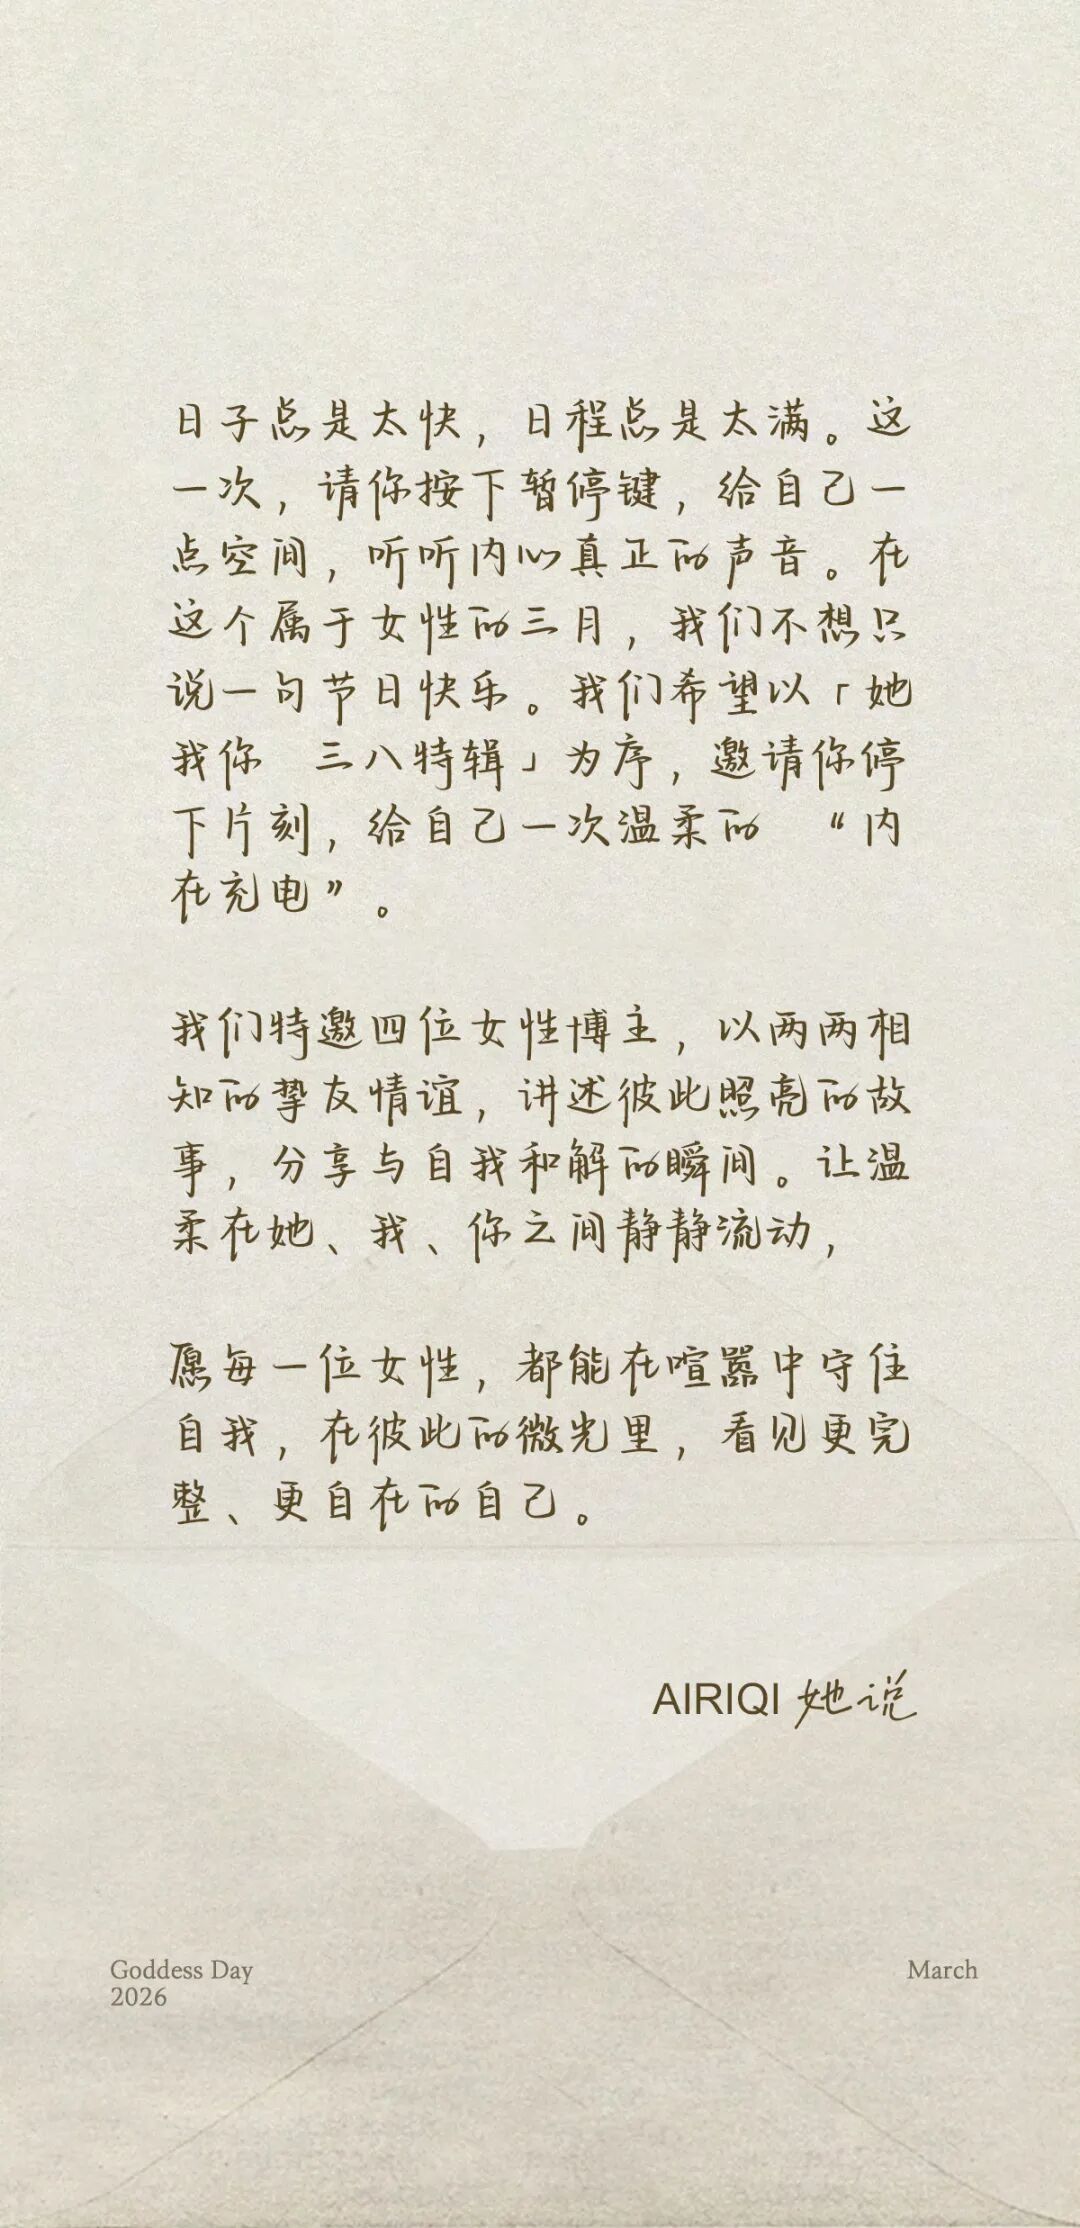 日子总是太快，日程总是太满。这
一次，请你按下暂停键，给自己一
点空间，听听内心真正的声音。在
这个属于女性的三月，我们不想只
说一句节日快乐。我们希望以「她
我你　三八特辑」为序，邀请你停
下片刻，给自己一次温柔的　“内
在充电”。
我们特邀四位女性博主，以两两相
知的挚友情谊，讲述彼此照亮的故
事，分享与自我和解的瞬间。让温
柔在她、我、你之间静静流动，
愿每一位女性，都能在喧嚣中守住
自我，在彼此的微光里，看见更完
整、更自在的自己。
AIRIQI 她说
Goddess Day
2026
March